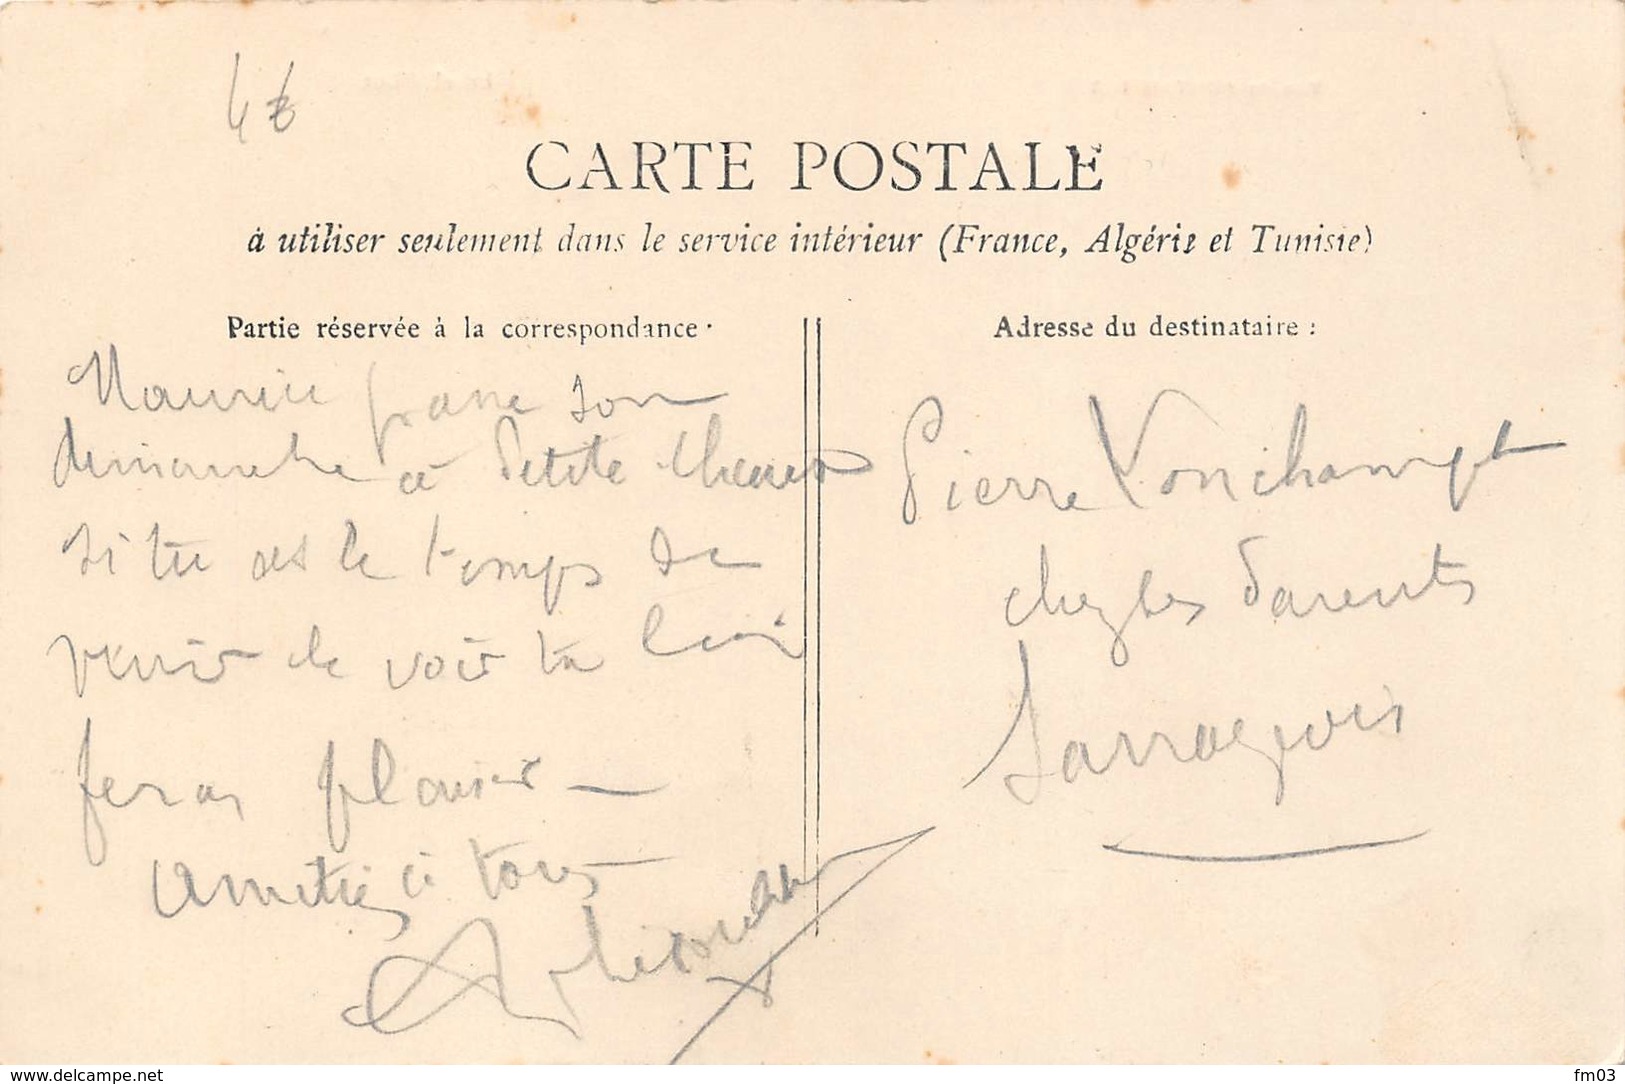 CARTE POSTALE
à utiliser seulement dans le service intérieur (France, Algérie et Tunisie)
Partie réservée à la correspondance
Maurice passe son
dimanche à Petite
si tu as le temps de
venir le voir tu lui
feras plaisir —
Amitiés à tous —
Adresse du destinataire :
Pierre
chez les Parents
www.delcampe.net
fm03